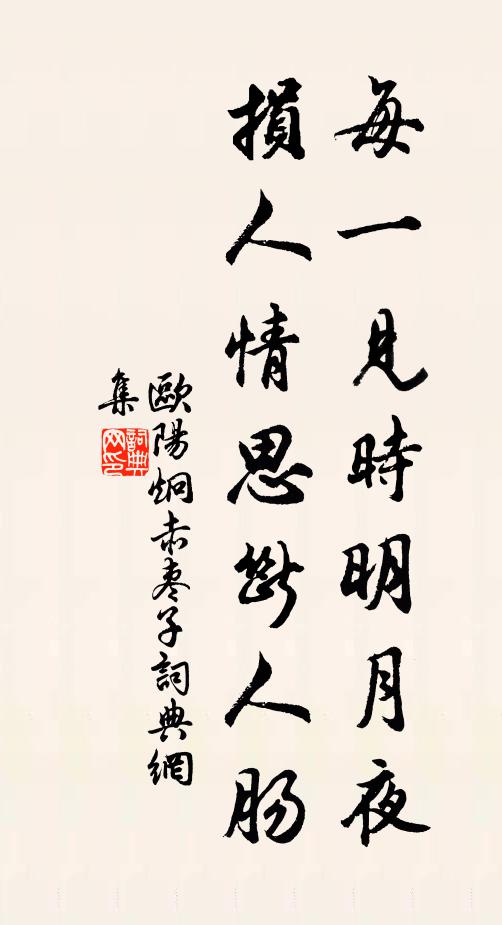 每一見時明月夜
損人情思斷人腸
歐陽炯赤棗子詞典網
集
詞典
网印